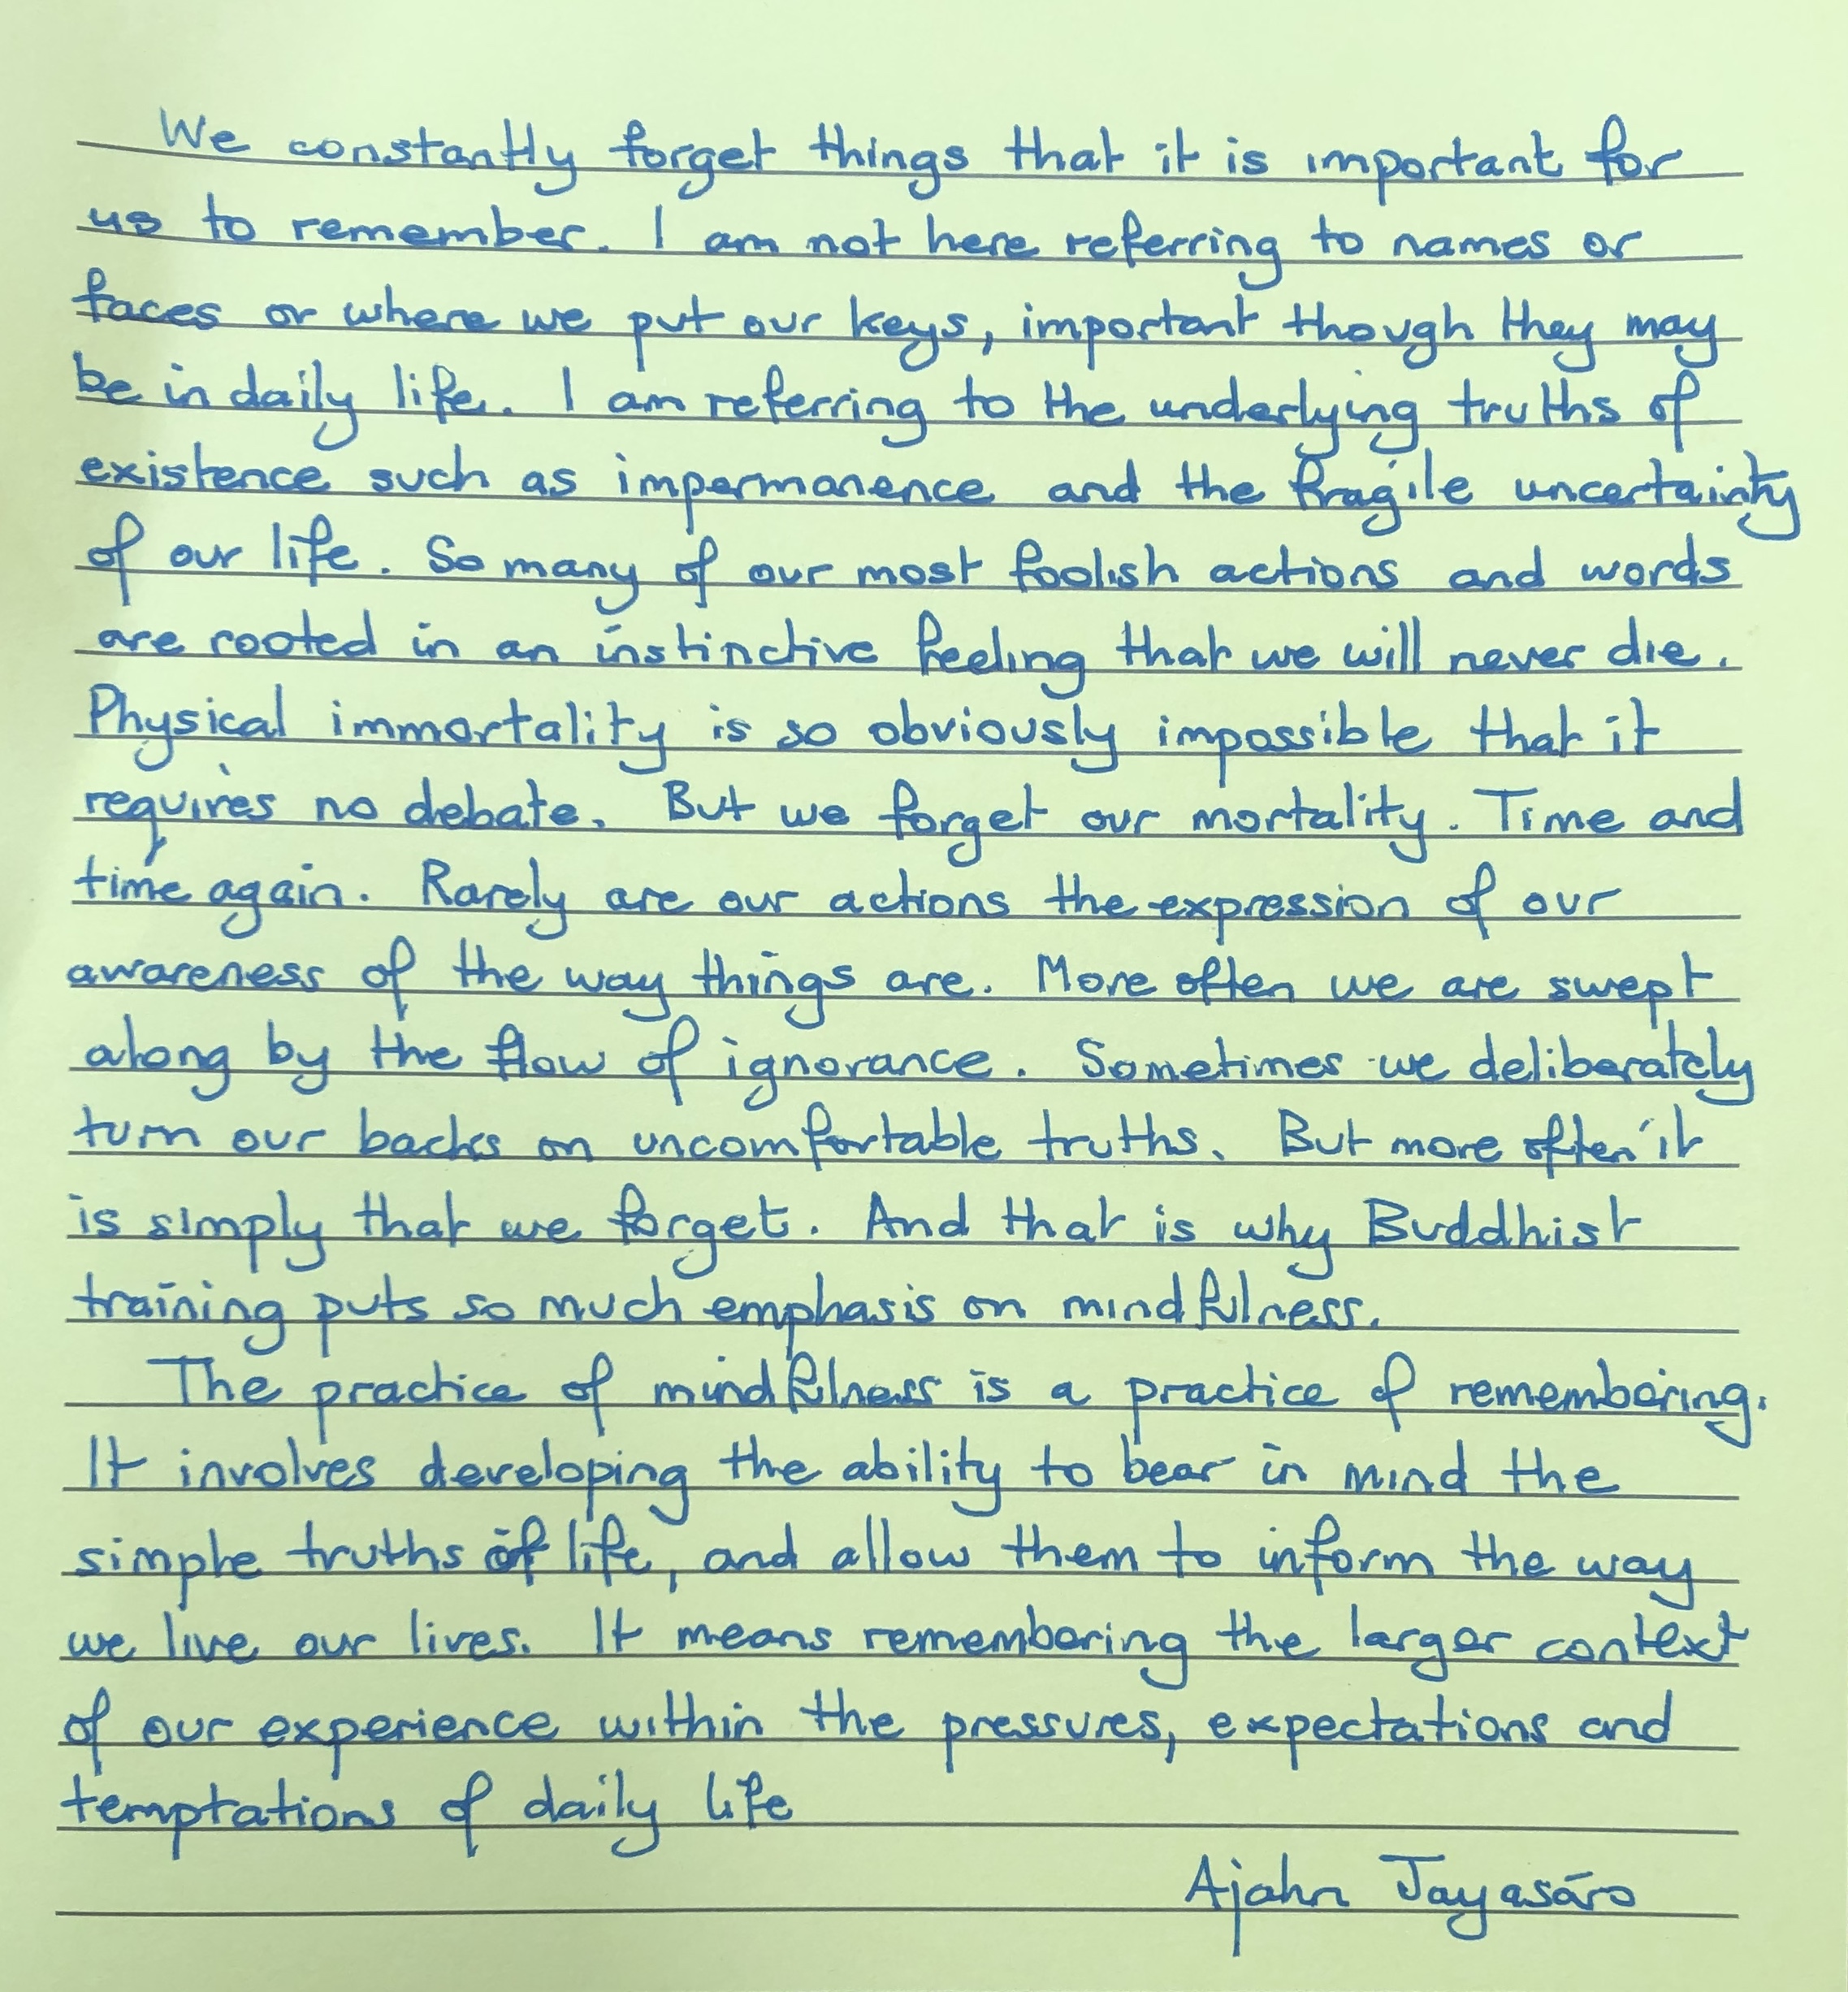 We constantly forget things that it is important for
us to remember. I am not here referring to names or
faces or where we put our keys, important though they may
be in daily life. I am referring to the underlying truths of
existence such as impermanence and the fragile uncertainty
of our life. So many of our most foolish actions and words
are rooted in an instinctive feeling that we will never die.
Physical immortality is so obviously impossible that it
requires no debate. But we forget our mortality. Time and
time again. Rarely are our actions the expression of our
awareness of the way things are. More often we are swept
along by the flow of ignorance. Sometimes we deliberately
turn our backs on uncomfortable truths. But more often it
is simply that we forget. And that is why Buddhist
training puts so much emphasis on mindfulness.
The practice of mindfulness is a practice of remembering.
It involves developing the ability to bear in mind the
simple truths of life, and allow them to inform the way
we live our lives. It means remembering the larger context
of our experience within the pressures, expectations and
temptations of daily life
Ajahn Jayasāro